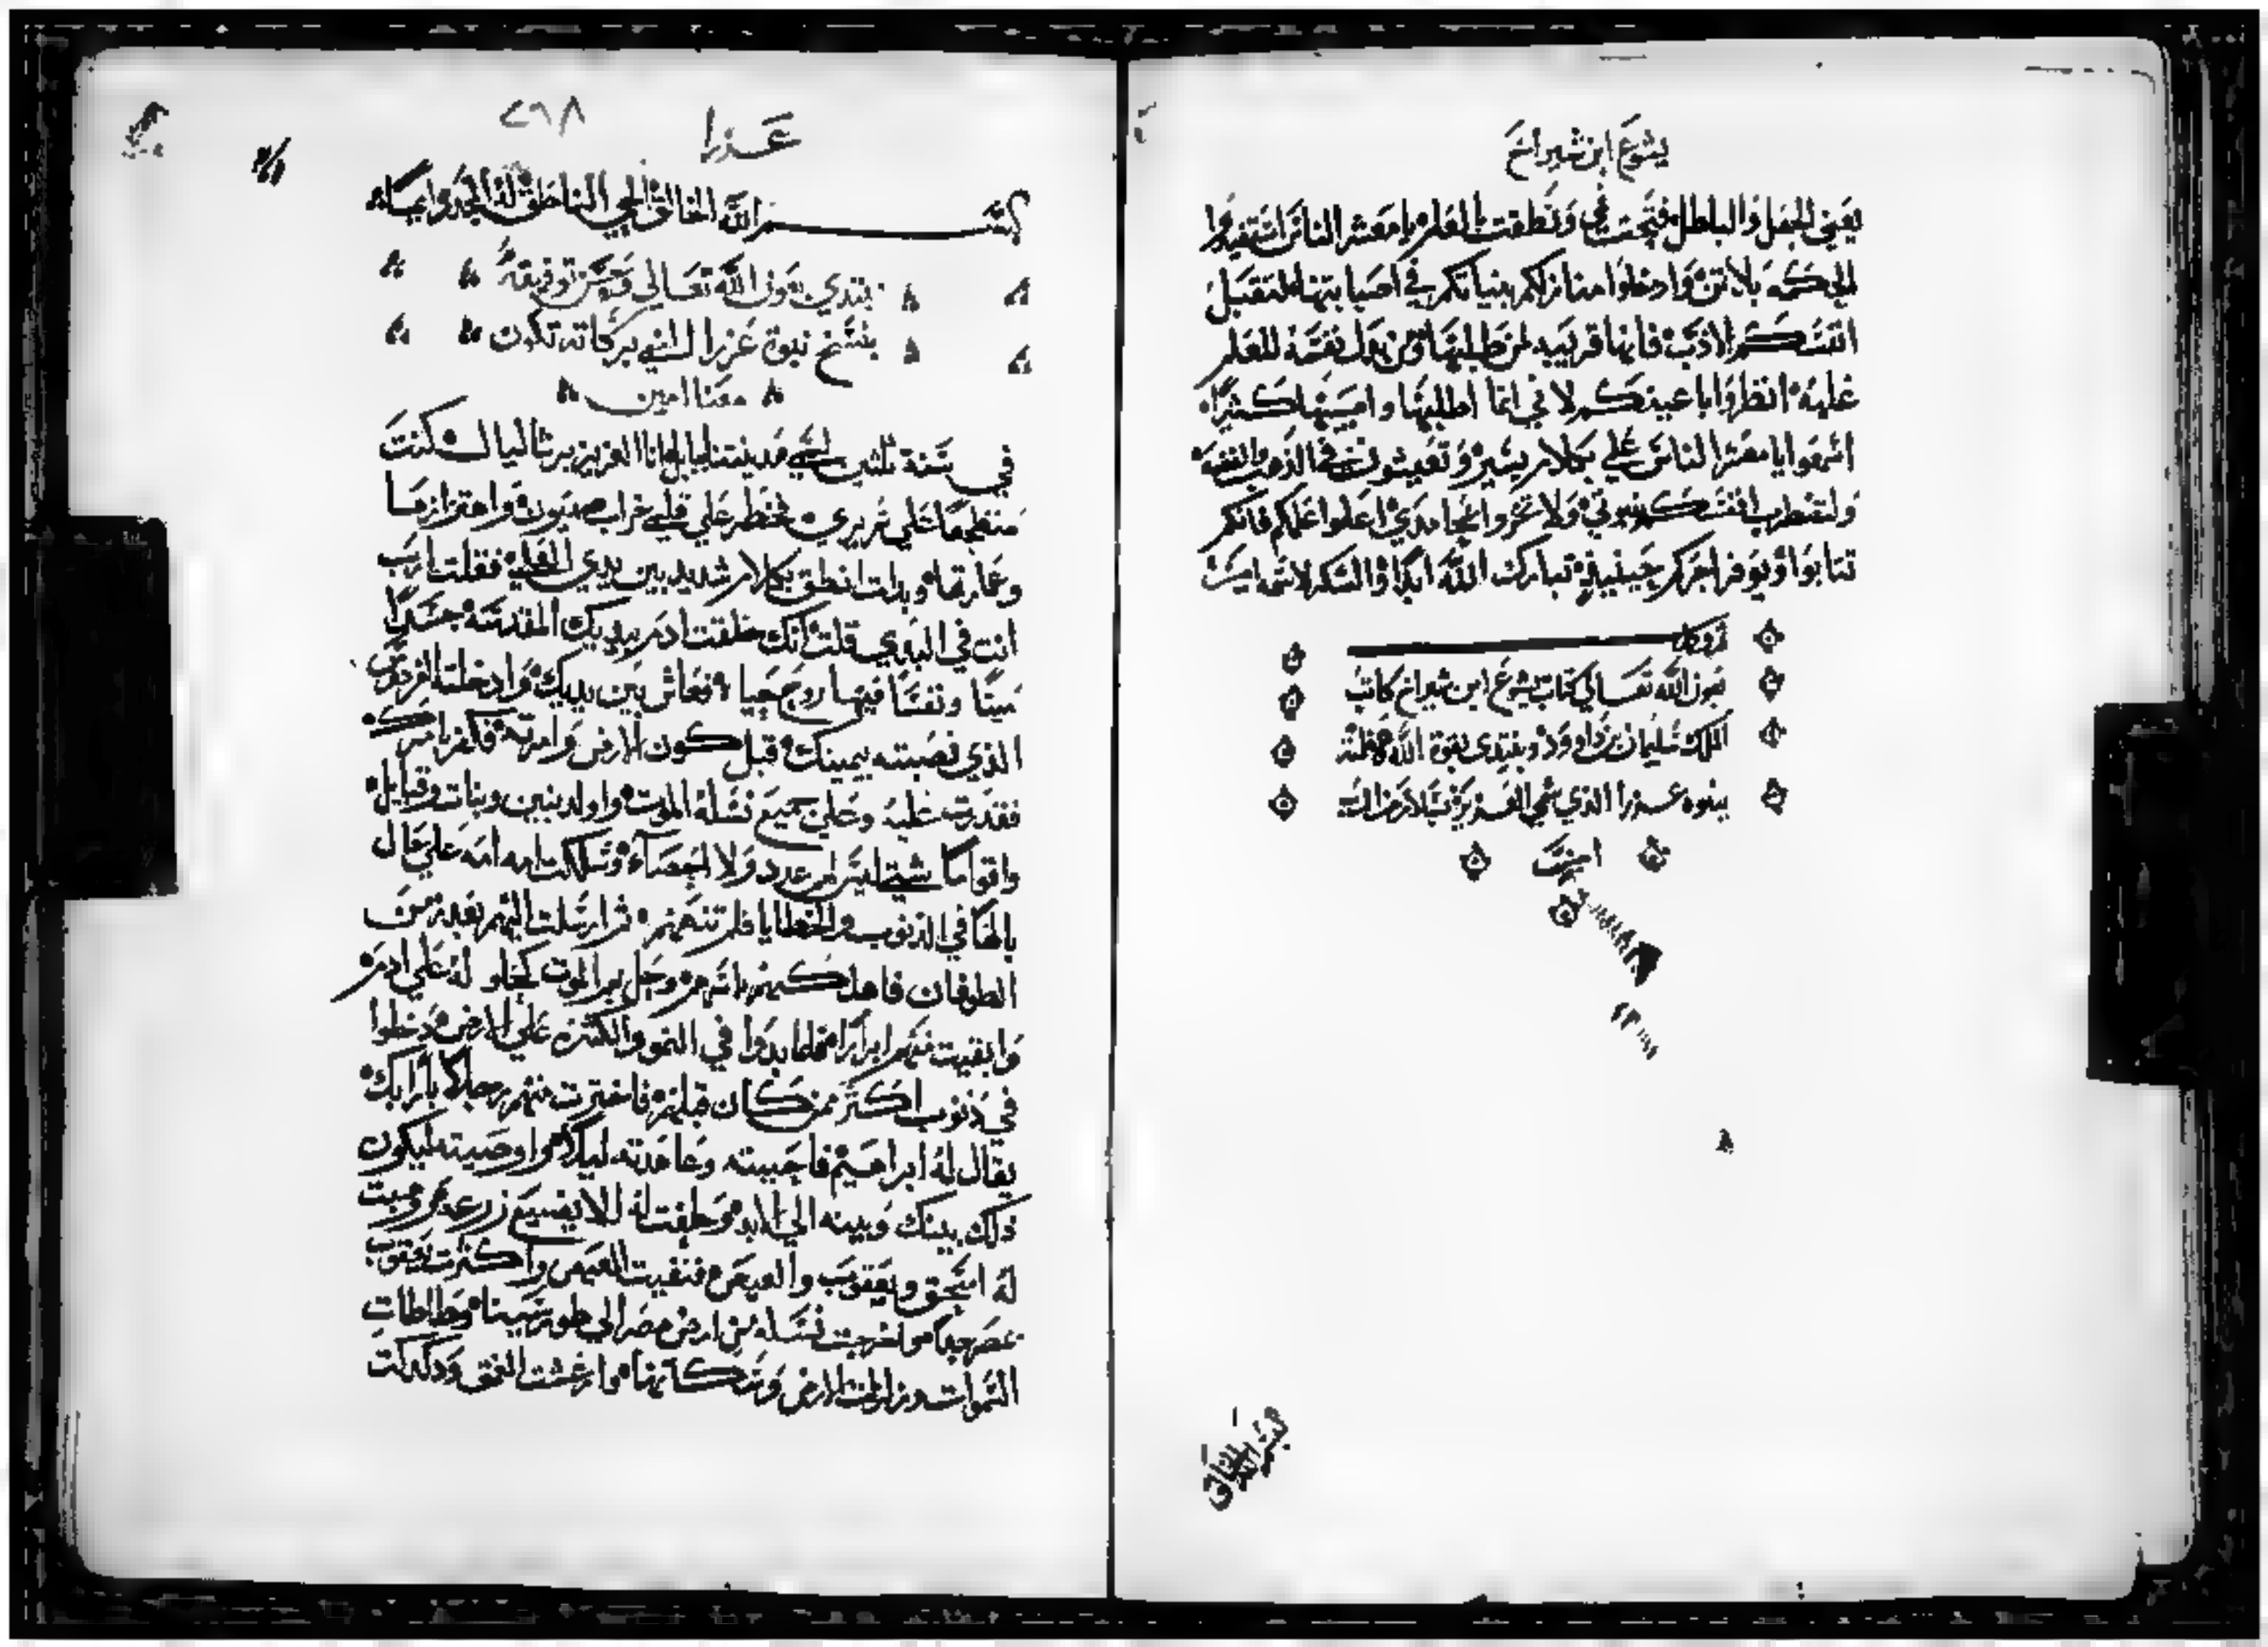 يشوع ابن شيراخ
يعني للجهل والباطل فتحت فمي ونطقت بالعلم يا معشر الناس استفيدوا
الحكمه بلا ثمن وادخلوا منازلكم بنياتكم في اصابتها لتقبل
انفسكم الادب فانها قريبه لمن طلبها ومن بذل نفسه للعلم
عليه انظروا باعينكم لاني انما اطلبها واحببتها كثيرا
اسمعوا يا معشر الناس علمي بكلام يسير وتعيشون في الذهب والفضه
ولتضطرب انفسكم ولا تخزوا اعلوا عملكم فانكم
تثابوا ويوفر اجركم حينيذ تبارك الله ابدا والشكر لاسمه امين
وكمل
بعون الله تعالي كتاب يشوع ابن شيراخ كاتب
الملك سليمان بن داوود ونبتدي بقوة الله
بنبوه عزرا الذي سمي العزيز بسلام من الرب
امين
بسم الله الخالق
عزرا
٢٦٨
بسم الله الخالق الحي الناطق له المجد دايما
نبتدي بعون الله تعالي وحسن توفيقه
بنسخ نبوة عزرا النبي بركاته تكون
معنا امين
في سنة ثلثين لسبي مدينتنا ببابل انا العزيز بن ثاليال كنت
منضجعا علي سريري فخطر علي قلبي خراب صهيون واهتزازها
وعمارتها وبدات انطق بكلام شديد بين يدي العلي فقلت يا رب
انت في البدي قلت انك خلقت ادم بيديك المقدسة جسدا
ميتا ونفسا فيها روح حيا فعاش بين يديك وادخلته الفردوس
الذي نصبته بيمينك قبل كون الارض وامرته فكفر امرك
فقدرت عليه وعلي جميع نسله الموت واولد بنين وبنات وقبايل
واقواما شتي ليس لهم عدد ولا احصاء وسلكت امه امه علي حال
بالها في الذنوب والخطايا فلم تنههم ثم ارسلت اليهم بعد زمن
الطوفان فاهلكتهم باسرهم وحل بهم الموت كحلوله علي ادم
وابقيت منهم ابرارا فلما بدوا في النمو والكثره علي الارض دخلوا
في ذنوب اكثر ممن كان قبلهم فاخترت منهم رجلا بارا بك
يقال له ابراهيم فاحببته وعاهدته ليلا واوصيته ليكون
ذلك بينك وبينه الي الابد وحلفت له الا يضيع زرعه ووهبت
له اسحق ويعقوب والعيص فنفيت العيص واكثرت يعقوب
واخرجت نسله من ارض مصر الي طور سينا وطاطات
السموات وزلزلت الارض وسكانها وارعشت العمق ودكدكت